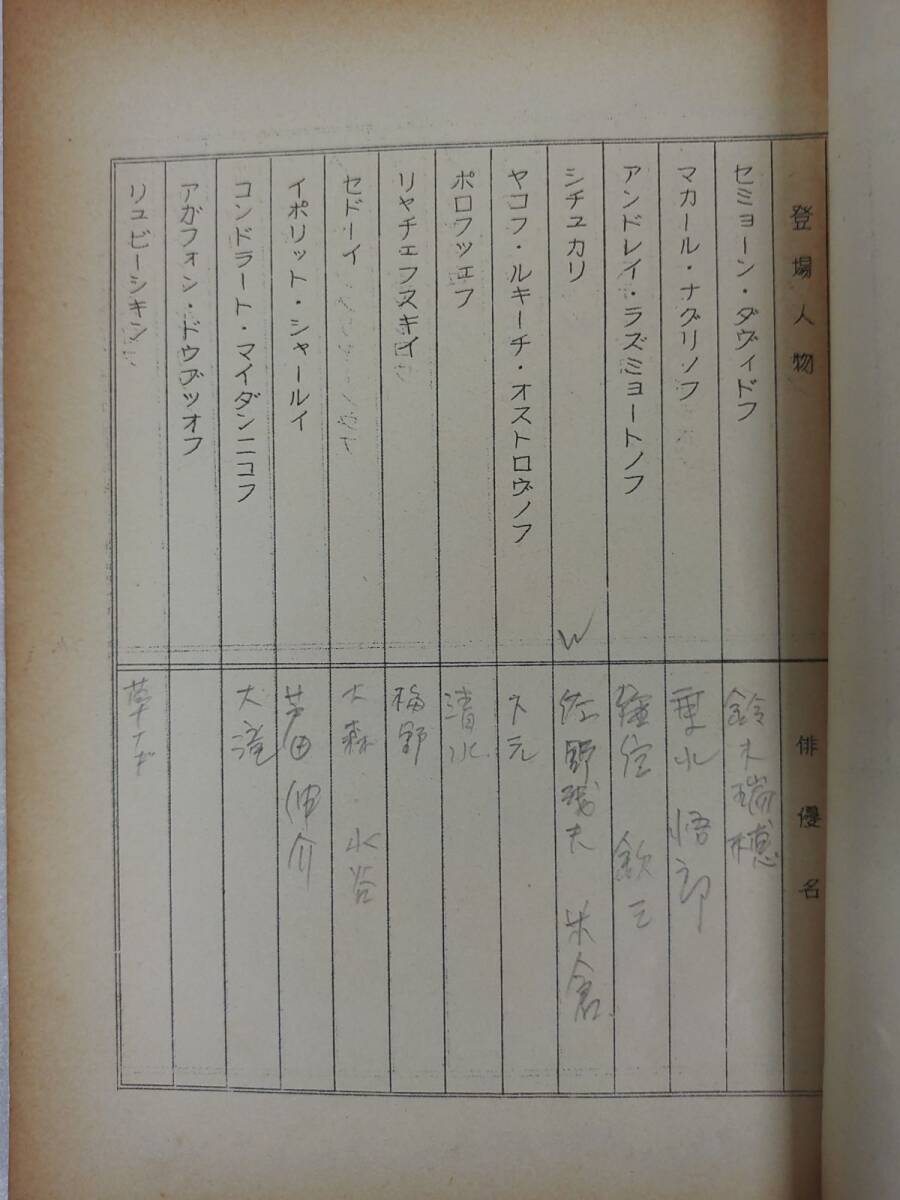 登場人物
俳優名
セミョーン・ダヴィドフ
鈴木瑞穂
マカール・ナグリノフ
垂水悟郎
アンドレイ・ラズミョートノフ
欽三
シチュカリ
佐野浅夫 米倉
ヤコフ・ルキーチ・オストロヴノフ
ポロフツェフ
清水
リャチェフスキイ
梅野
セドーイ
大森 水谷
イポリット・シャールイ
芦田伸介
コンドラート・マイダンニコフ
大滝
アガフォン・ドウブツオフ
リュビーシキン
草ナギ